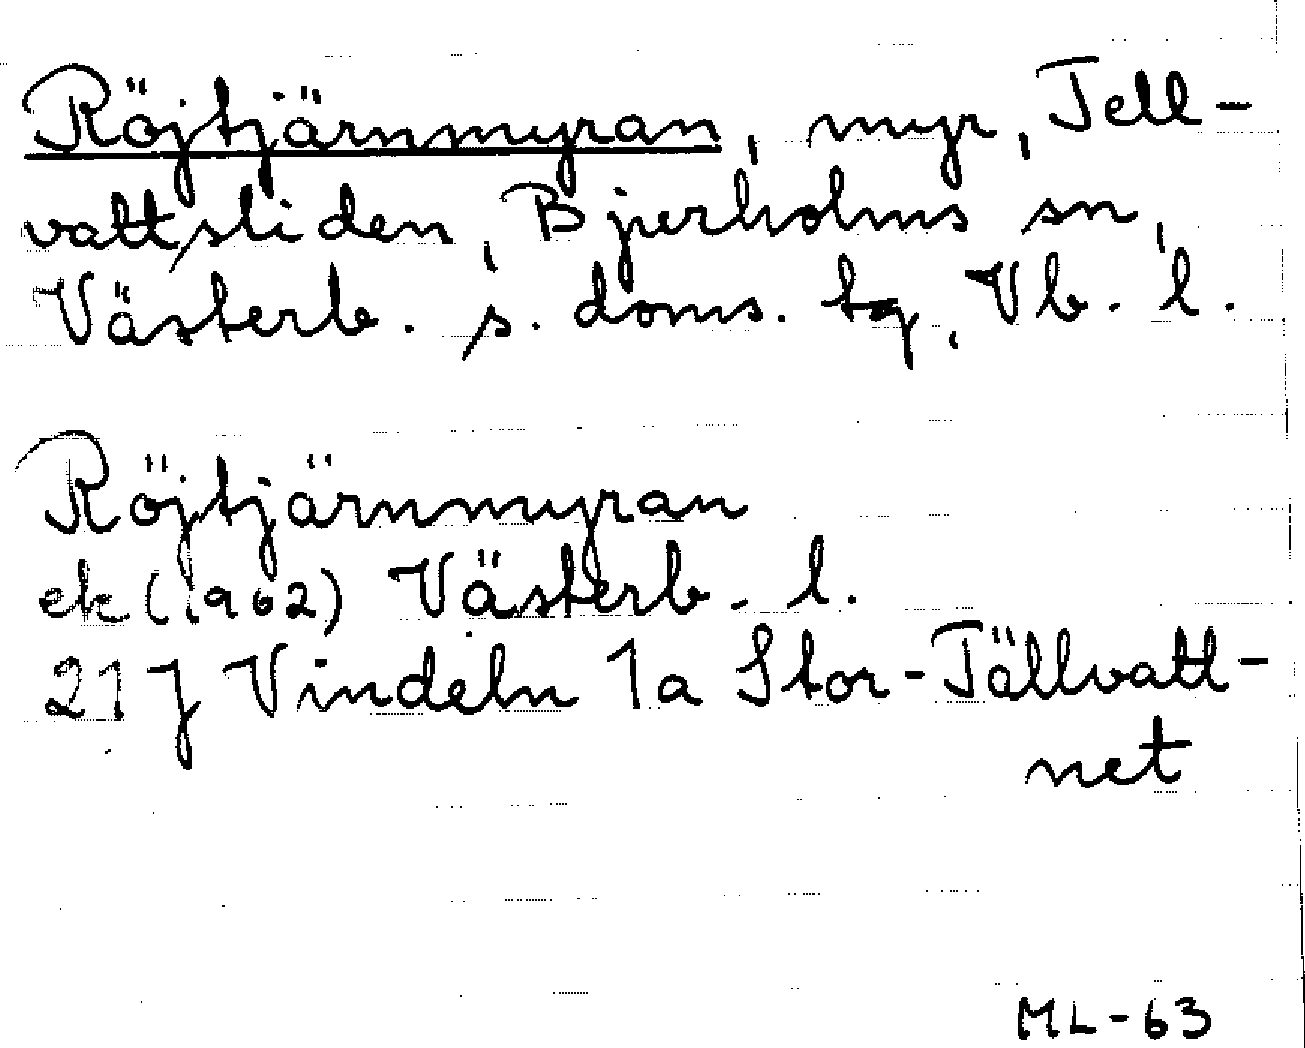 Röjtjärnmyran, myr, Tell-
vattsliden, Bjurholms sn,
Västerb. s. doms. tg, Vb. l.
Röjtjärnmyran
ek (1962) Västerb. l.
21 J Vindeln 1a Stor-Tällvatt-
net
ML-63